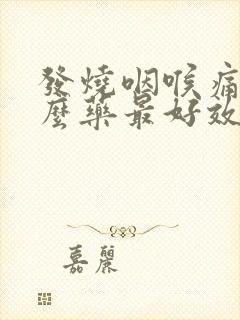 發燒咽喉痛
麼藥最好效
嘉麗